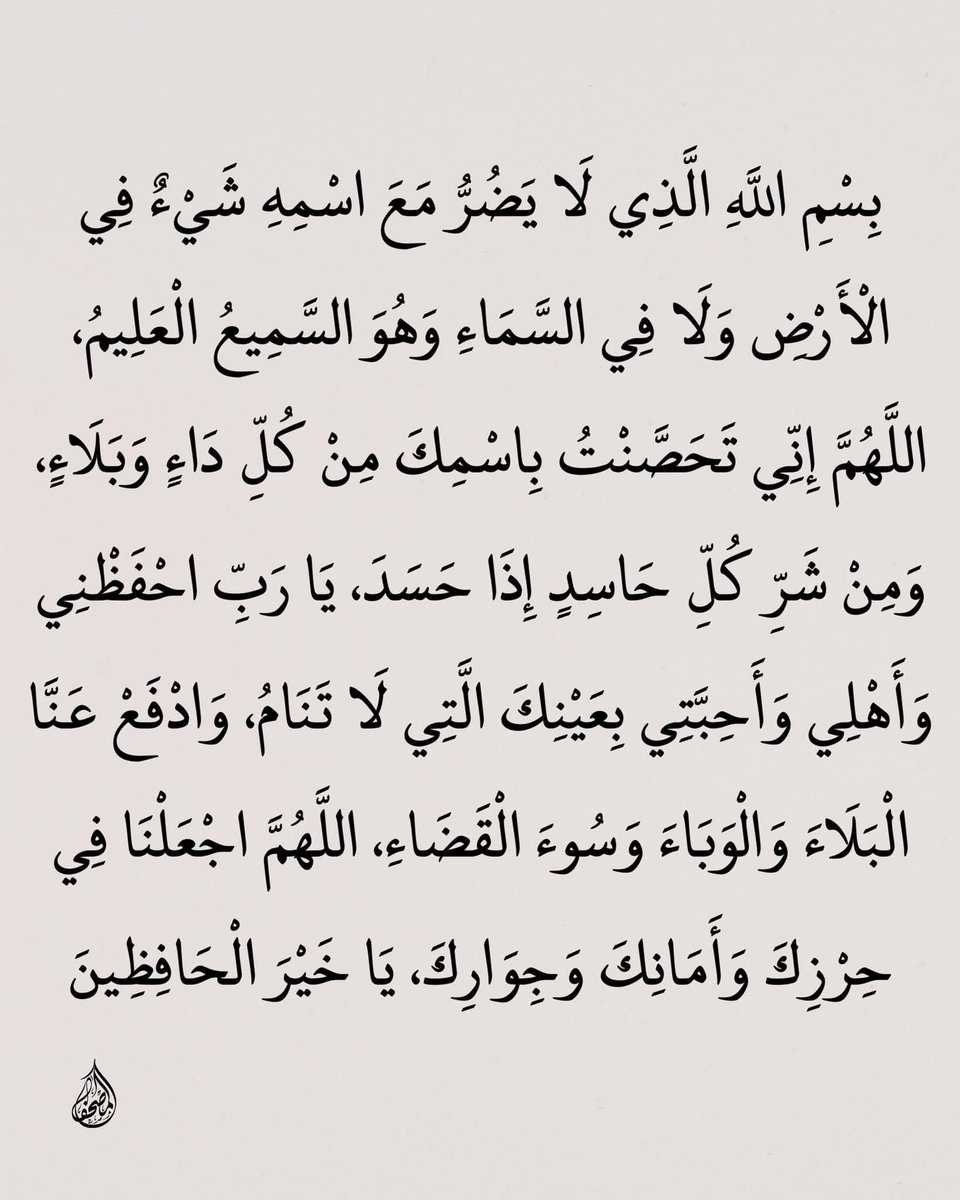 بِسْمِ اللَّهِ الَّذِي لَا يَضُرُّ مَعَ اسْمِهِ شَيْءٌ فِي
الْأَرْضِ وَلَا فِي السَّمَاءِ وَهُوَ السَّمِيعُ الْعَلِيمُ،
اللَّهُمَّ إِنِّي تَحَصَّنْتُ بِاسْمِكَ مِنْ كُلِّ دَاءٍ وَبَلَاءٍ،
وَمِنْ شَرِّ كُلِّ حَاسِدٍ إِذَا حَسَدَ، يَا رَبِّ احْفَظْنِي
وَأَهْلِي وَأَحِبَّتِي بِعَيْنِكَ الَّتِي لَا تَنَامُ، وَادْفَعْ عَنَّا
الْبَلَاءَ وَالْوَبَاءَ وَسُوءَ الْقَضَاءِ، اللَّهُمَّ اجْعَلْنَا فِي
حِرْزِكَ وَأَمَانِكَ وَجِوَارِكَ، يَا خَيْرَ الْحَافِظِينَ